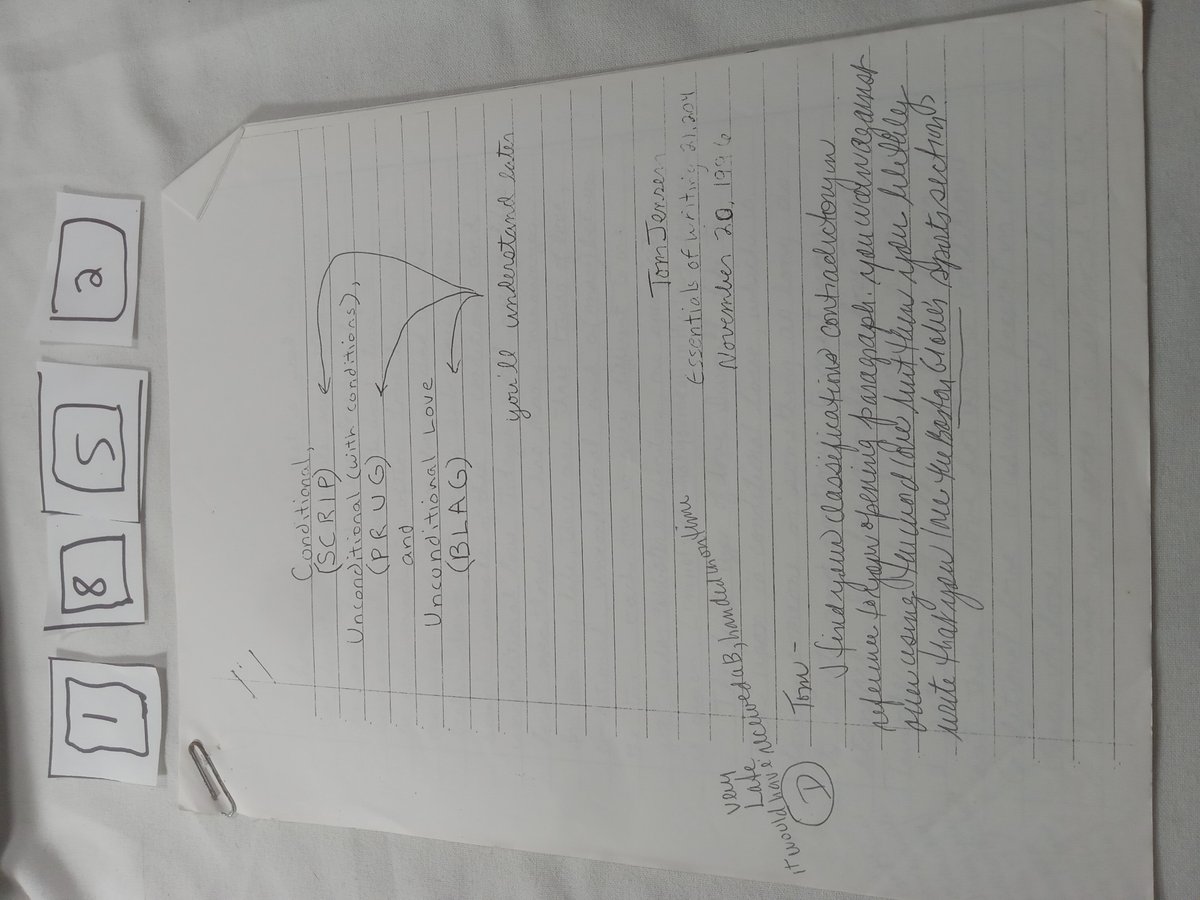 1 8 5 2
Conditional,
(SCRIP)
Unconditional (with conditions),
(PRUG)
and
Unconditional Love
(BLAG)
you'll understand later
Tom Jensen
Essentials of writing 21.204
November 20, 1996
very
Late
it would have received a B, handed in on time
D
Tom -
I find your classifications contradictory in
reference to your opening paragraph. you warn against
over using the word love but then you blithely
write that you love the Boston Globe's sports section.